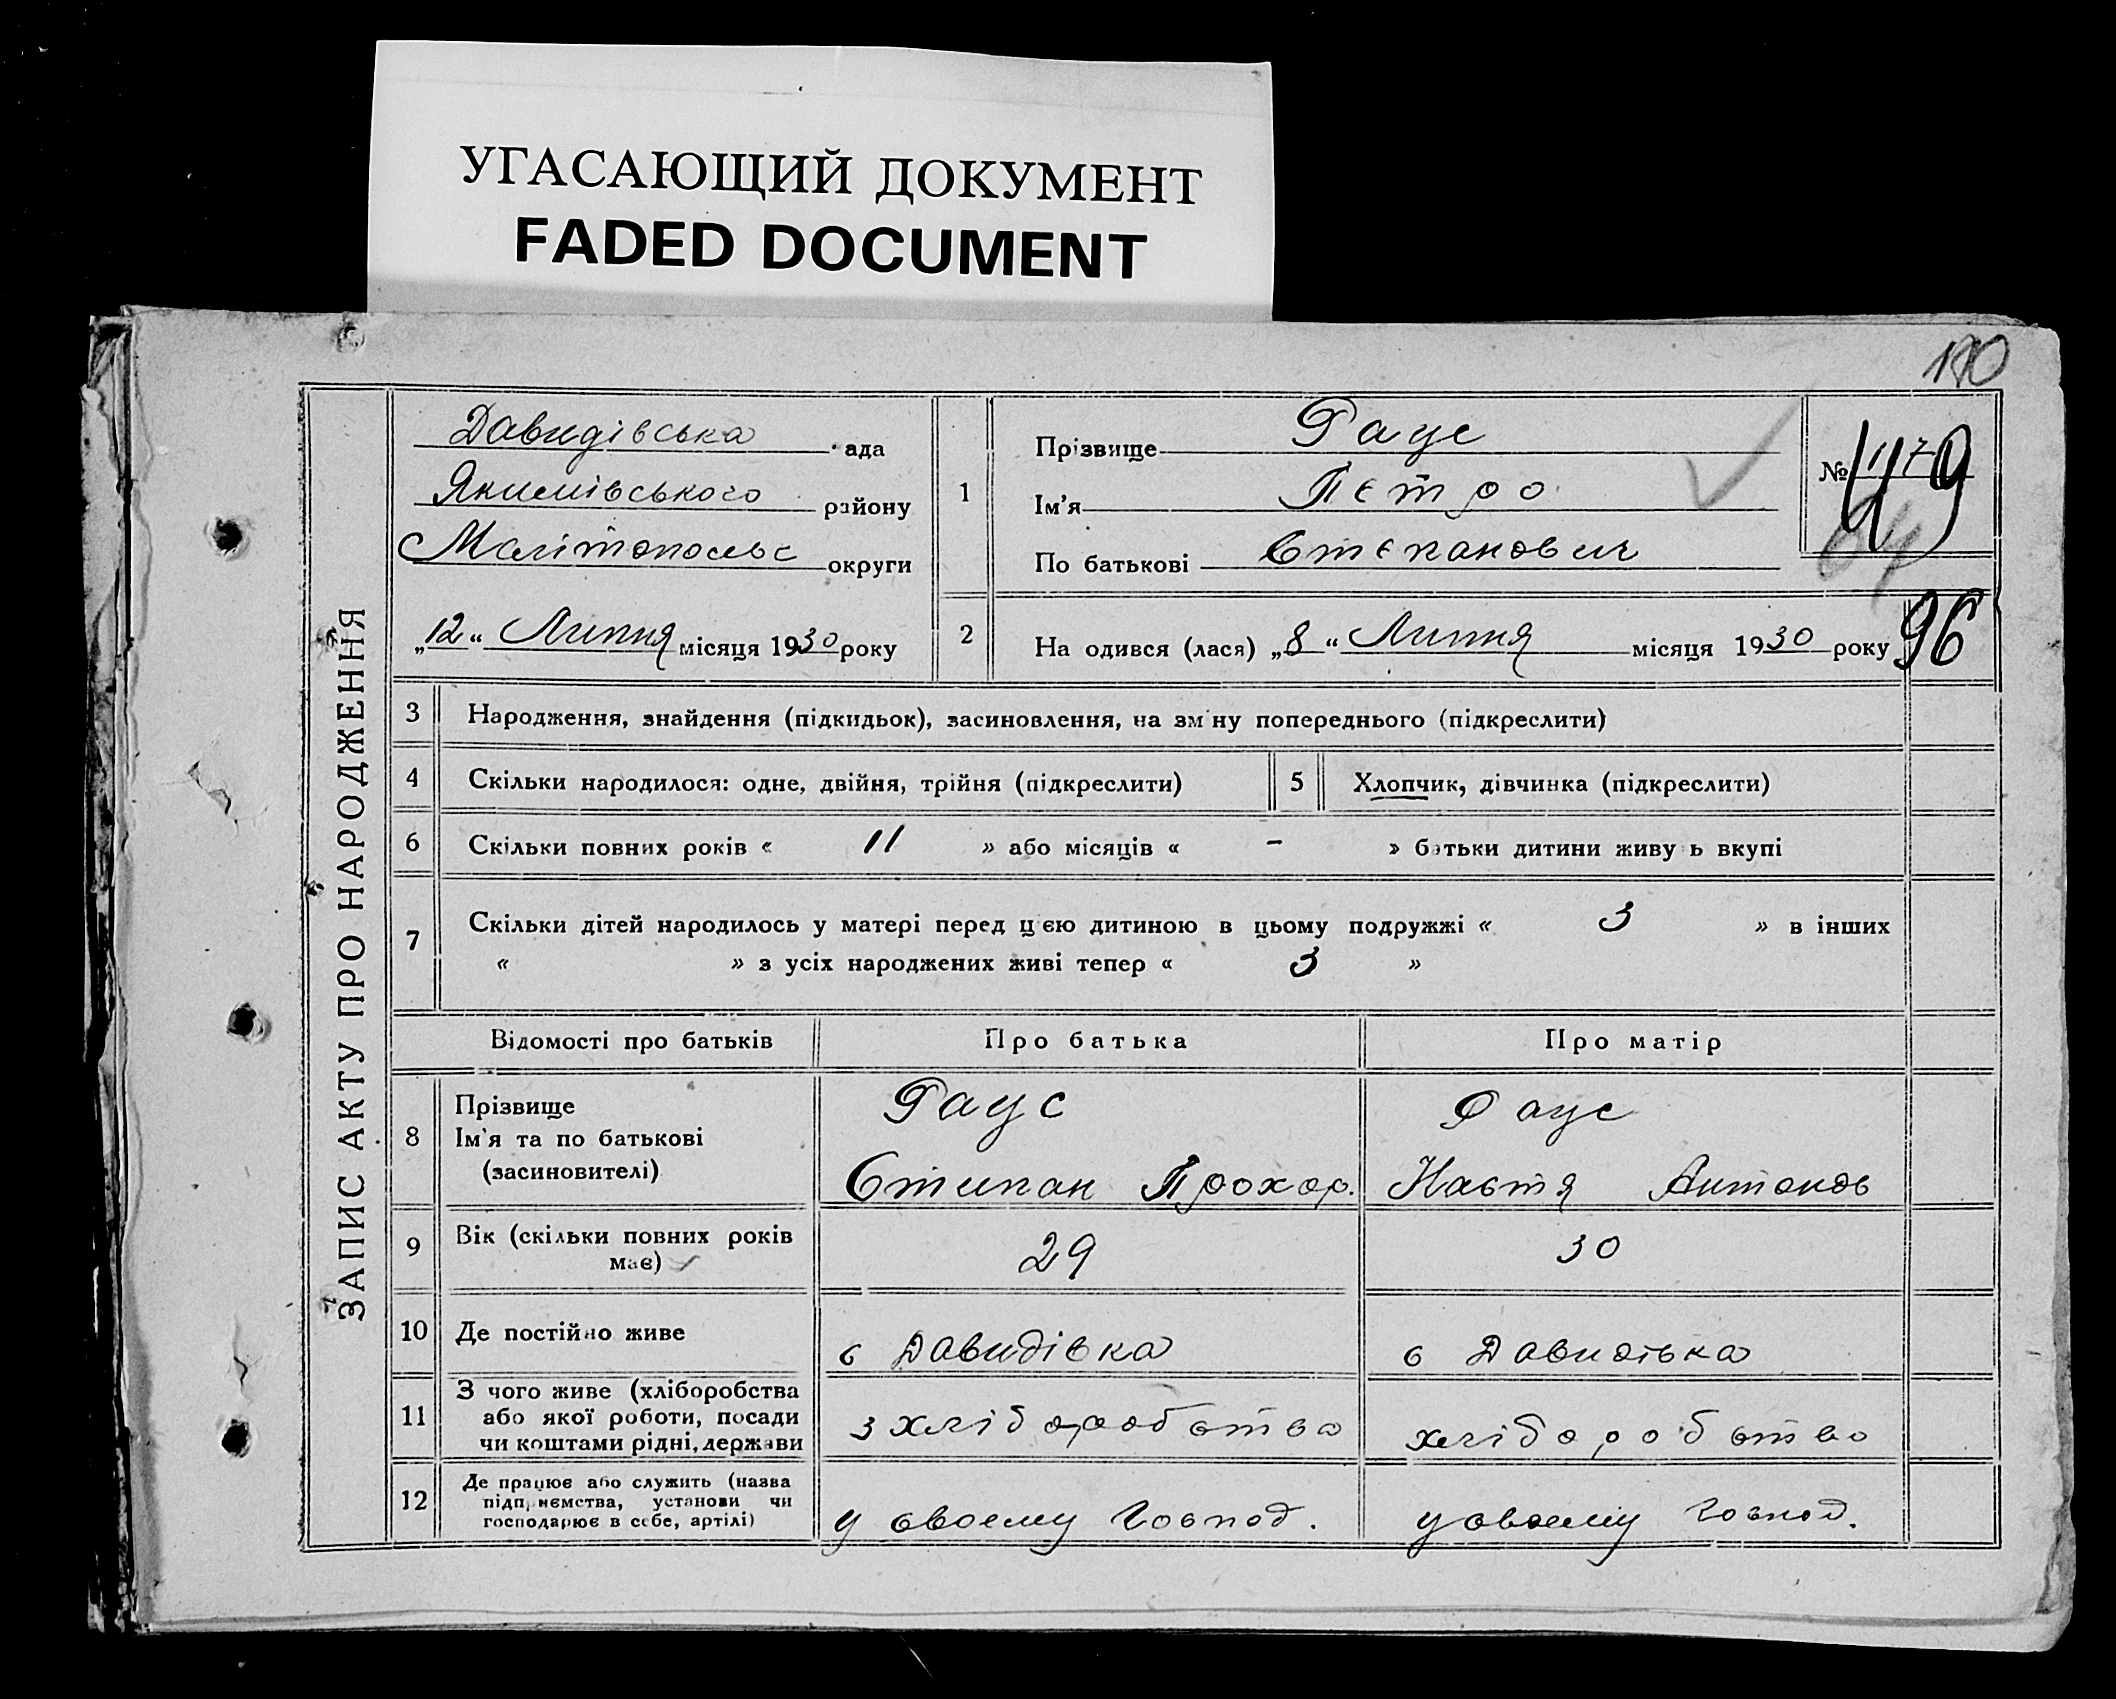 УГАСАЮЩИЙ ДОКУМЕНТ
FADED DOCUMENT
190
ЗАПИС АКТУ ПРО НАРОДЖЕННЯ
Давидівська ада
Якимівського району
Мелітопольс округи
„12“ Липня місяця 1930 року
1
Прізвище Раус
Ім'я Петро
По батькові Степанович
№
96
2 На одився (лася) „8“ Липня місяця 1930 року
3 Народження, знайдення (підкидьок), засиновлення, на зм ну попереднього (підкреслити)
4 Скільки народилося: одне, двійня, трійня (підкреслити) 5 Хлопчик, дівчинка (підкреслити)
6 Скільки повних років « 11 » або місяців « - » батьки дитини живу ь вкупі
7 Скільки дітей народилось у матері перед цією дитиною в цьому подружжі « 3 » в інших
« » з усіх народжених живі тепер « 3 »
Відомості про батьків Про батька Про матір
8 Прізвище
Ім'я та по батькові
(засиновителі)
Раус
Степан Прохор.
Раус
Настя Антонов
9 Вік (скільки повних років
має)
29
30
10 Де постійно живе
с Давидівка
с Давидівка
11 З чого живе (хліборобства
або якої роботи, посади
чи коштами рідні, держави
з хліборобства
хліборобство
12 Де працює або служить (назва
підприємства, установи чи
господарює в себе, артілі)
у своему Господ.
у своему Господ.